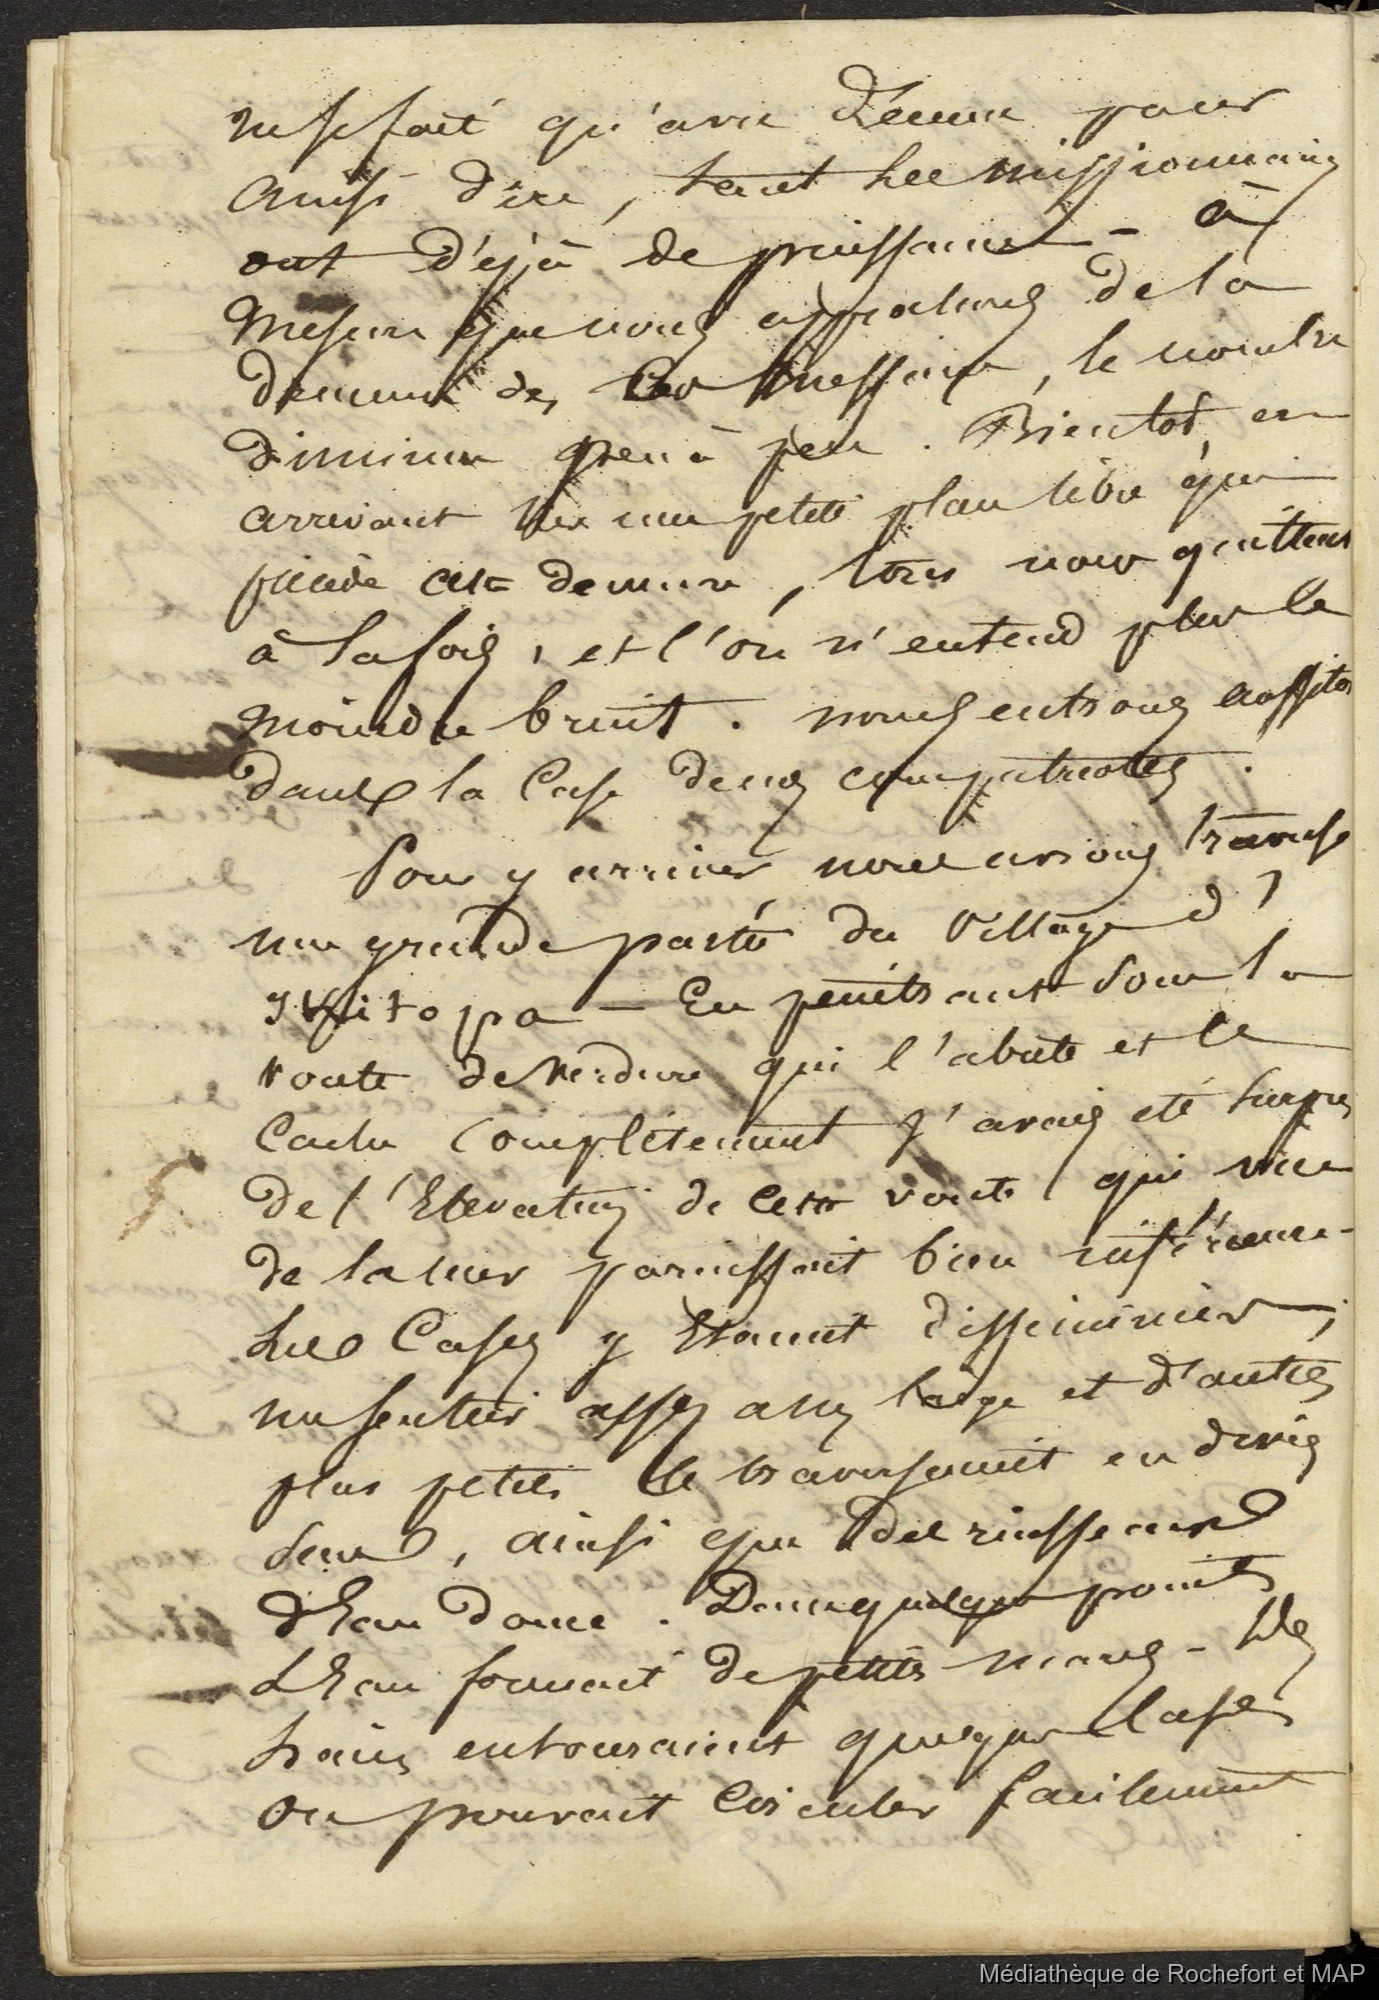 ne se fait qu'avec l'émoi pour
ainsi dire, tant les missionnaires
ont déjà de puissance - à
mesure que nous approchons de la
demeure de, ces messieurs, le nombre
diminue peu à peu. Bientôt, en
arrivant sur une petite place libre qui
précède cette demeure, tous nous quittent
à la fois, et l'on n'entend plus le
moindre bruit. nous entrons aussitot
dans la case de nos compatriotes.
Pour y arriver nous avions traversé
une grande partie du village d'
- En pénétrant sous la
voute de verdure qui l'abrite et le
cache complétement j'avais été surpris
de l'élevation de cette voute qui vue
de la mer paraissait bien inférieure -
Les cases y étaient disséminées ;
un sentier assez large et d'autres
plus petits le traversaient en divers
sens, ainsi que des ruisseaux
d'Eau douce. Dans quelques points
L'Eau formait de petits marais - Des
haies entouraient quelques cases
on pouvait circuler facilement
Médiathèque de Rochefort et MAP